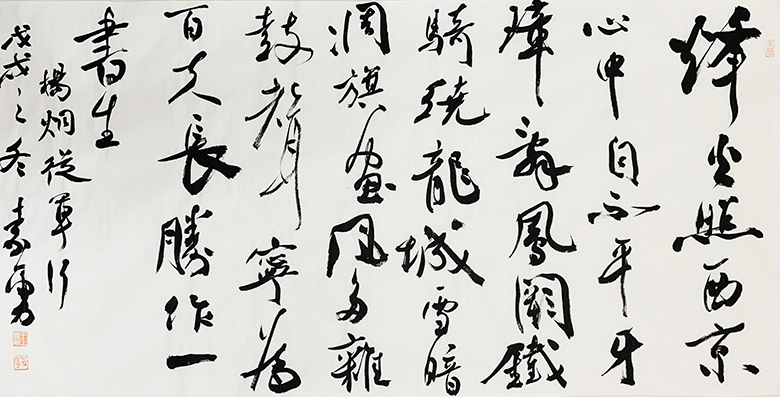 烽火照西京
心中自不平牙
璋辭鳳闕鐵
騎繞龍城雪暗
凋旗畫風多雜
鼓聲寧為
百夫長勝作一
書生
楊炯從軍行
戊戌之冬